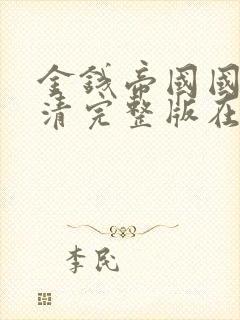 金錢帝國國
清完整版在
李民